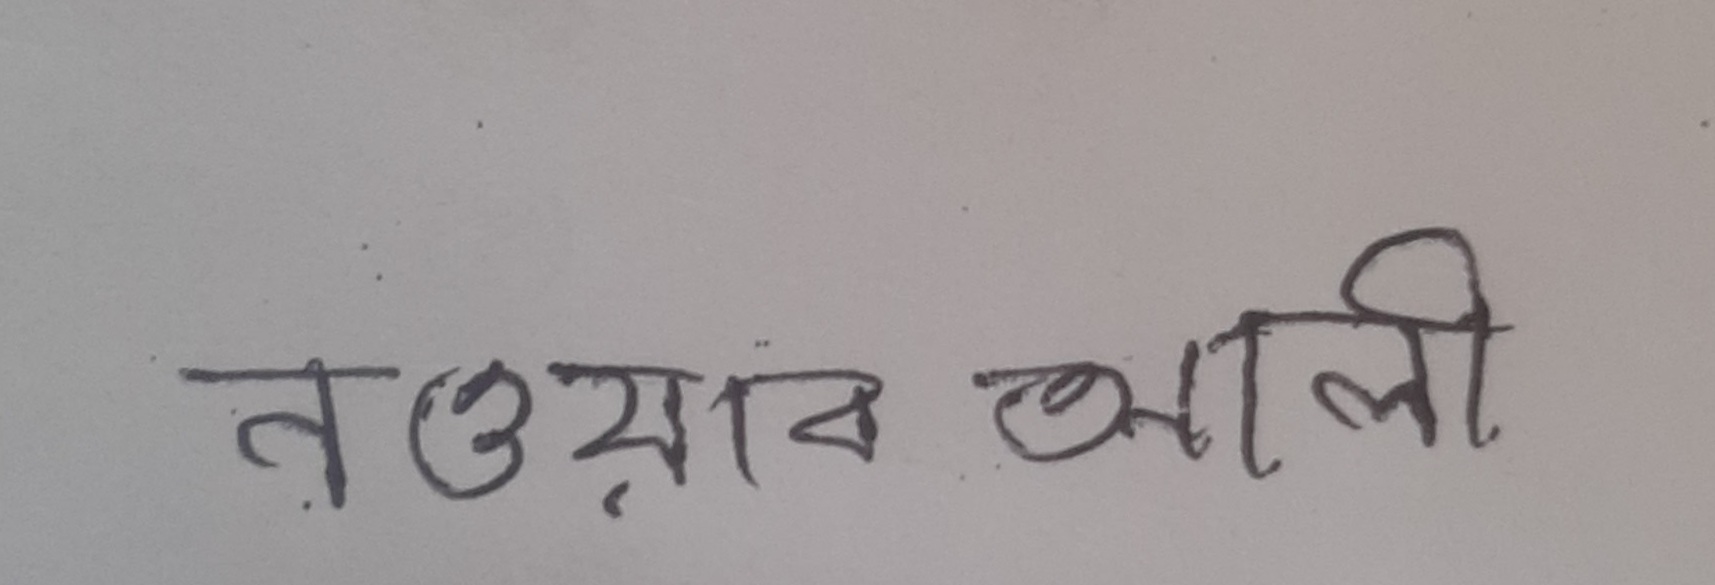 নওয়াব আলী